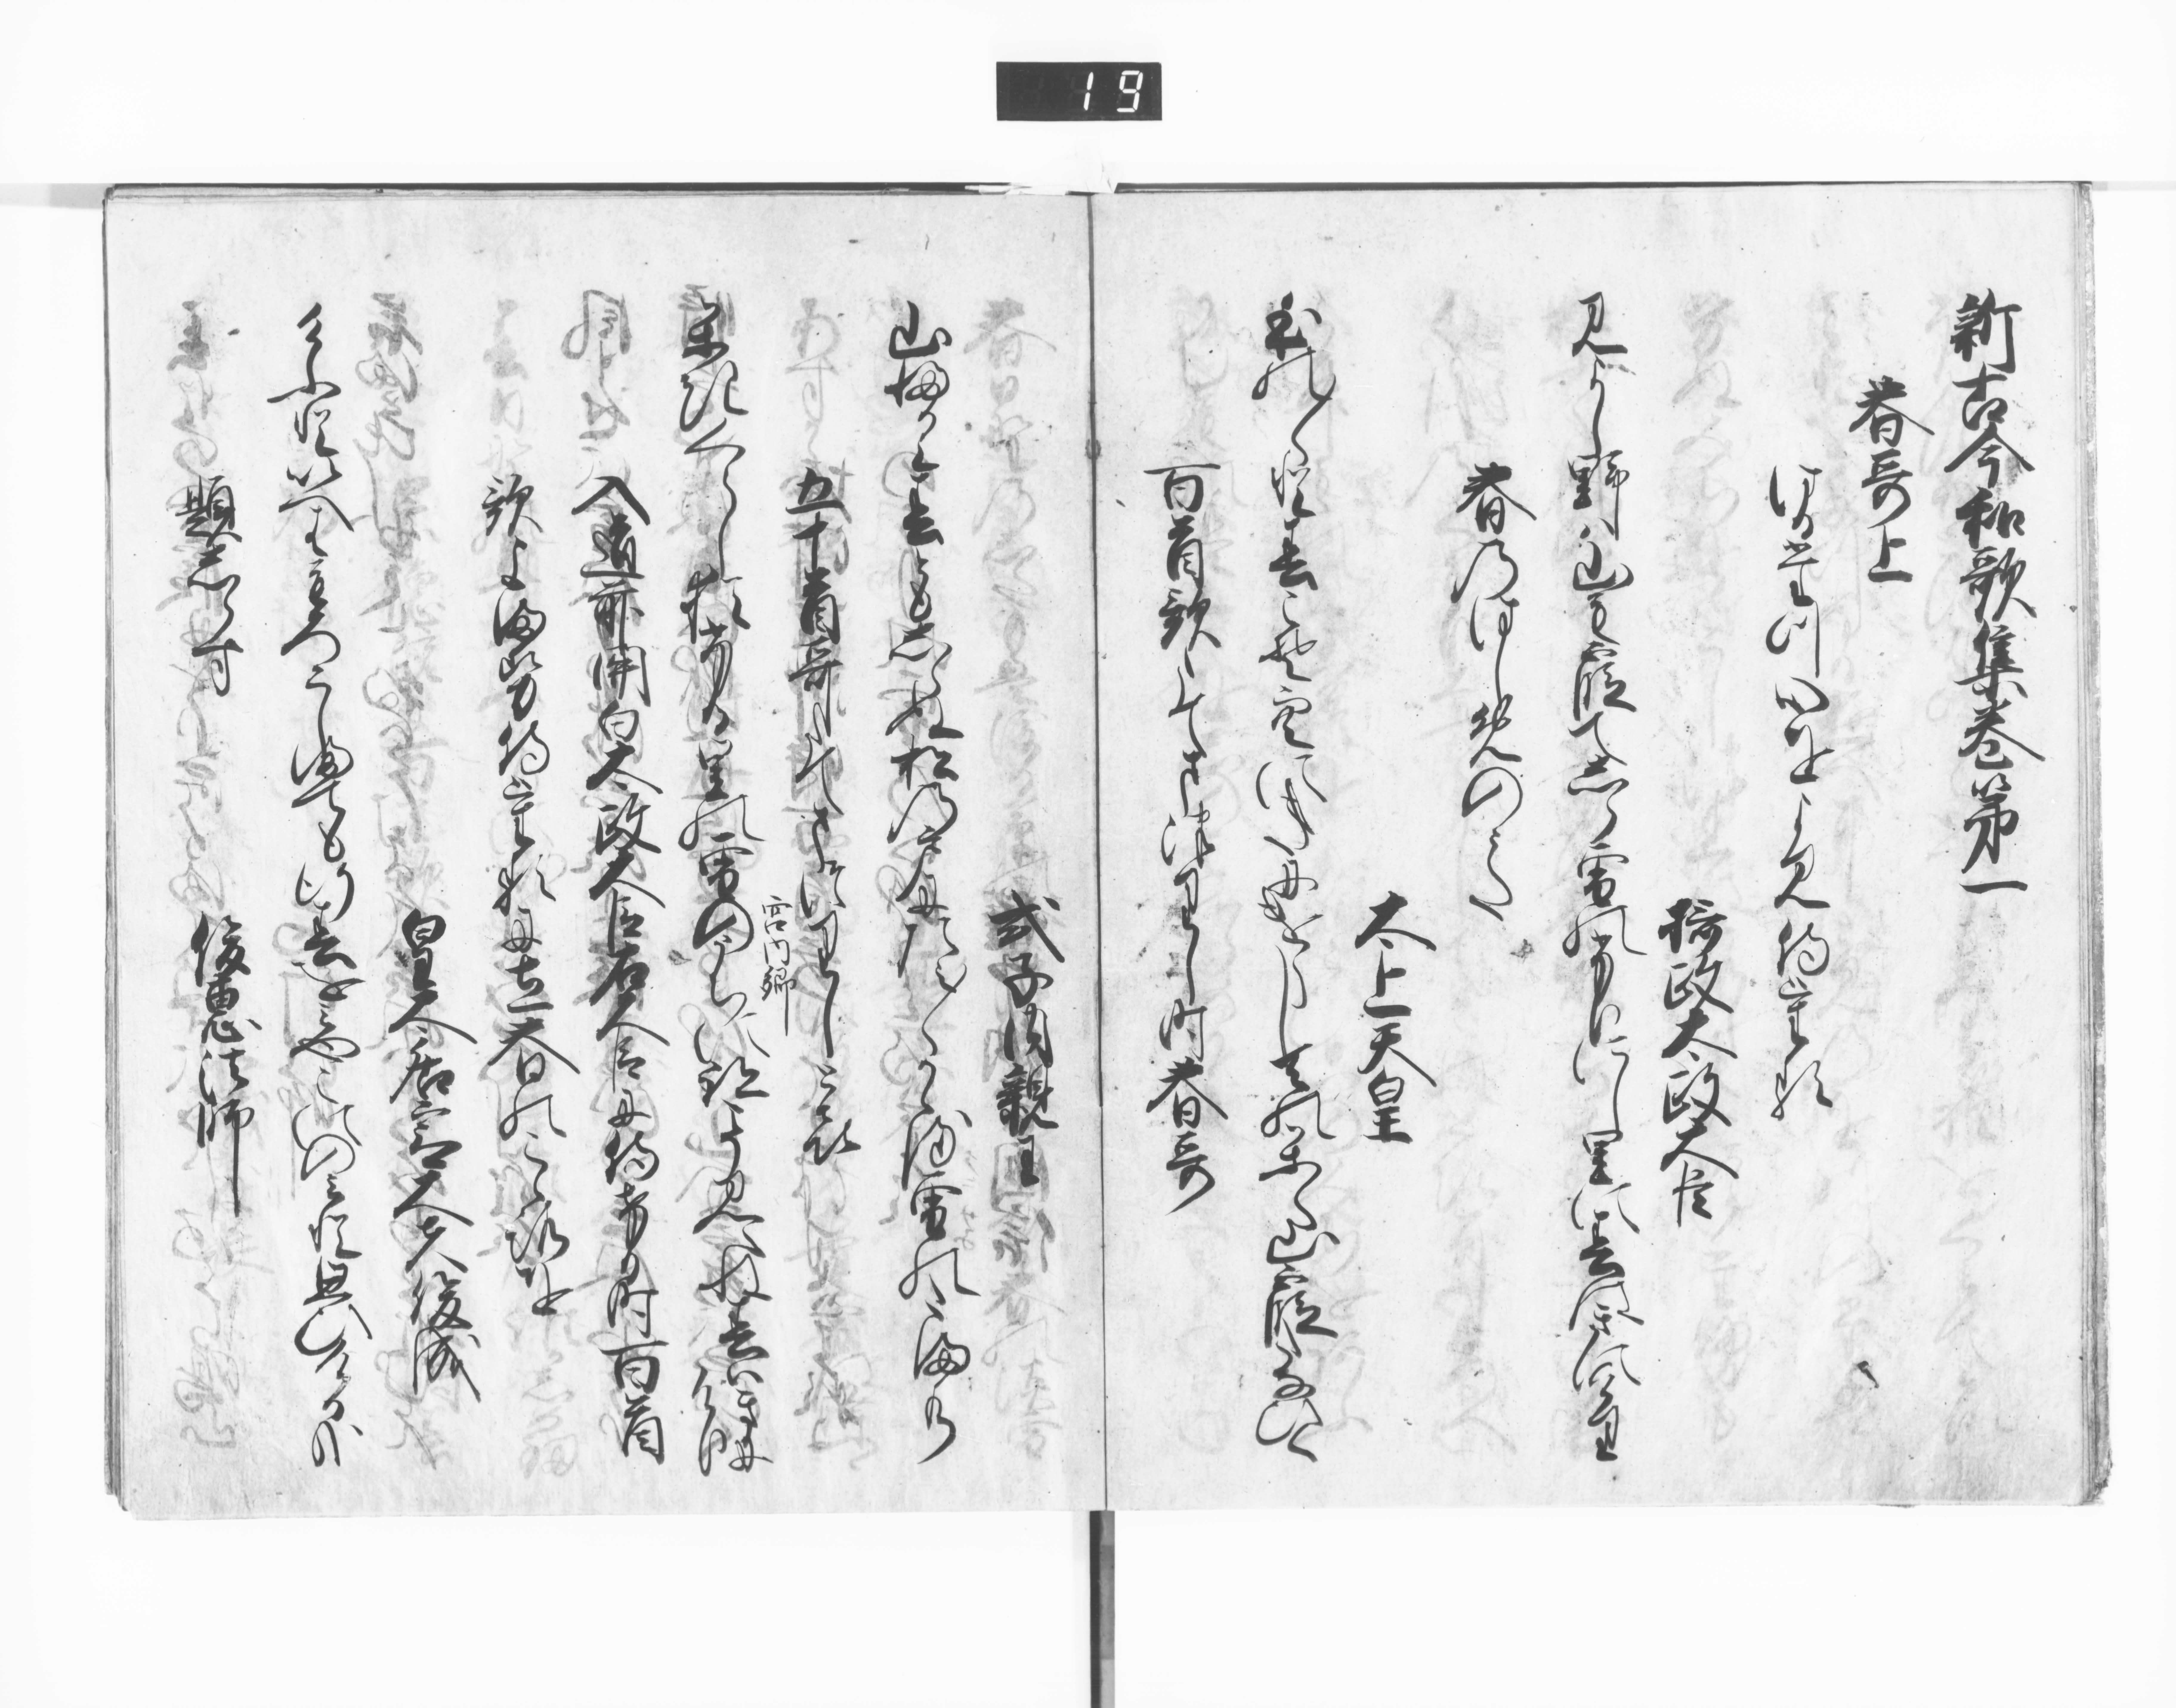 19
新古今和歌集巻第一
春哥上
はる堂川心をよみ侍里ける
摂政太政大臣
みよし野は山も霞てしら雪のふりにし里に春はきにけり
春のはしめのうた
太上天皇
ほの〱と春こそ空にきにけらしあまのかく山霞たなひく
百首歌たてまつりし時春哥
式子内親王
山ふかみ春ともしらぬ松の戸にたえ〱かゝる雪の玉水
五十首哥たてまつりし時
宮内卿
かきくらし猶ふる里の雪のうちに跡こそ見えね春はきにけり
入道前関白太政大臣右大臣に侍ける時百首
歌よませ侍けるに立春の心を
皇太后宮大夫俊成
けふといへはもろこしまても行春を都にのみと思ひけるかな
題しらす
俊恵法師